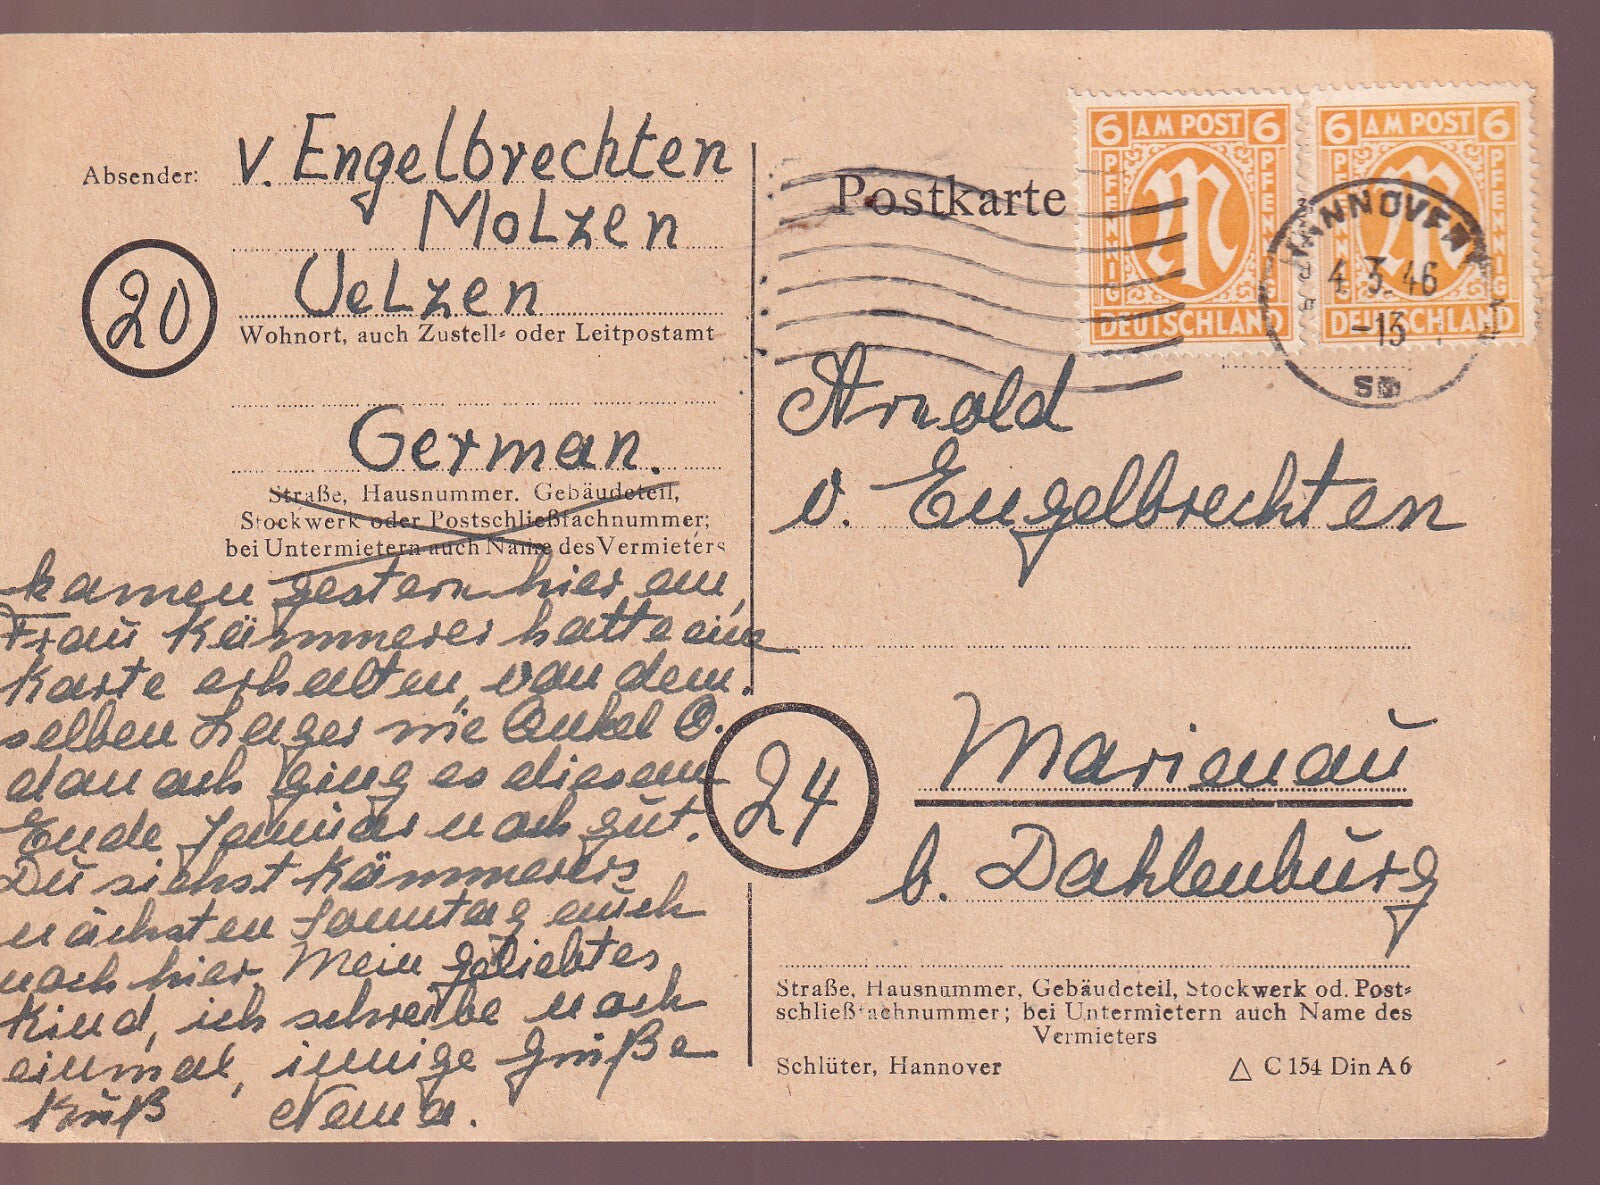 Absender: v. Engelbrechten
Molzen
20
Uelzen
Wohnort, auch Zustell= oder Leitpostamt
German.
Straße, Hausnummer, Gebäudeteil,
Stockwerk oder Postschließfachnummer;
bei Untermietern auch Name des Vermieters
kamen gestern hier an,
Frau Kämmerer hatte eine
Karte erhalten, von dem-
selben Lager wie Onkel O.
danach ging es diesem
Ende Januar noch gut.
Du siehst Kämmerers
nächsten Sonntag auch
noch hier. Mein geliebtes
Kind, ich schreibe noch
einmal, innige Grüße
Kuß
Postkarte
6 AM POST 6
PFENNIG PFENNIG
DEUTSCHLAND
6 AM POST 6
PFENNIG PFENNIG
DEUTSCHLAND
HANNOVER
4.3.46
-13
Arnold
v. Engelbrechten
24
Marienau
b. Dahlenburg
Straße, Hausnummer, Gebäudeteil, Stockwerk od. Post=
schließfachnummer; bei Untermietern auch Name des
Vermieters
Schlüter, Hannover
△ C 154 Din A 6